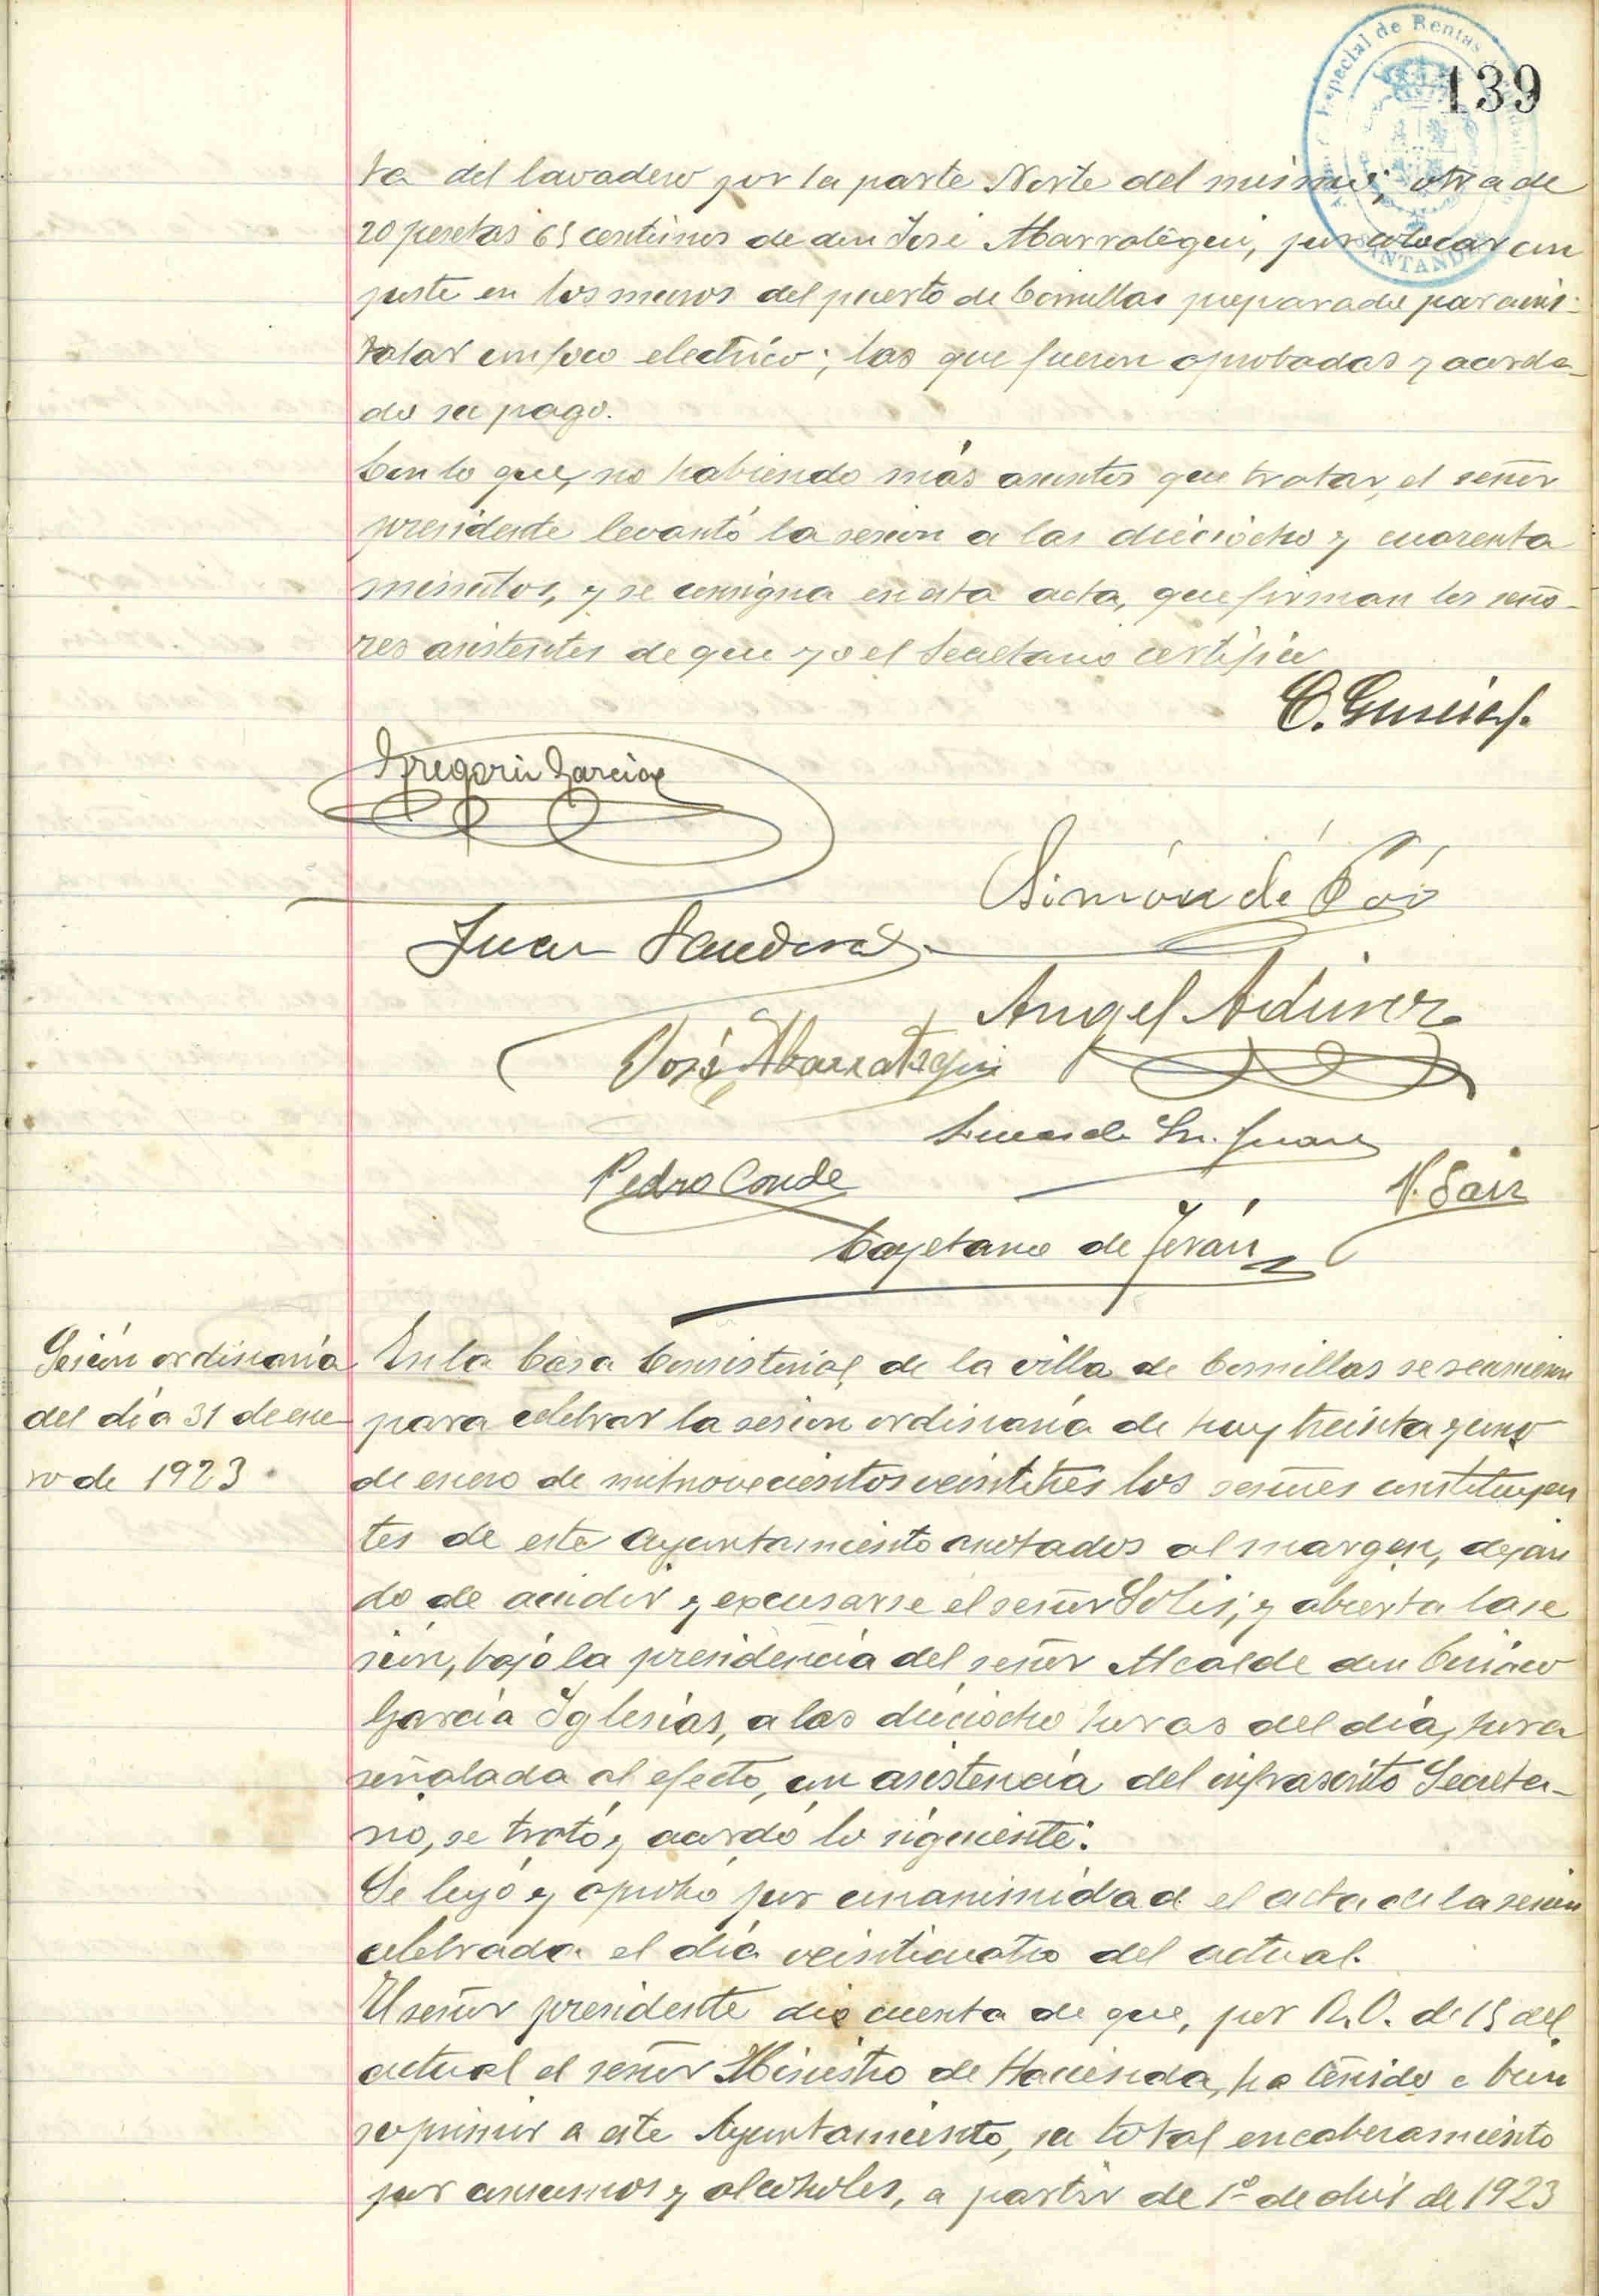 139
Especial de Rentas
SANTANDER
ta del lavadero por la parte Norte del mismo; otra de
20 pesetas 65 centimos de don José Abarrategui, por colocar un
poste en los muros del puerto de Comillas preparado para ins-
talar un foco electrico; las que fueron aprobadas y acorda-
do su pago.
Con lo que, no habiendo más asuntos que tratar, el señor
presidente levantó la sesion a las dieciocho y cuarenta
minutos, y se consigna en esta acta, que firman los seño-
res asistentes de que yo el Secretario certifico
C. García
Gregorio García
Simón de Cos
Juan Sandoval
Angel
José Abarrategui
Lucas de Sn. Juan
Pedro Conde
V. Saiz
Cayetano de Terán
Sesión ordinaria
del día 31 de ene
ro de 1923
En la Casa Consistorial de la villa de Comillas se reunieron
para celebrar la sesion ordinaria de hoy treinta y uno
de enero de mil novecientos veintitres los señores constituyen
tes de este Ayuntamiento anotados al margen, dejan
do de acudir y excusarse el señor Solis; y abierta la se
sión, bajo la presidencia del señor Alcalde don Ciriaco
García Iglesias, a las dieciocho horas del día, hora
señalada al efecto, con asistencia del infrascrito Secreta-
rio, se trató y acordó lo siguiente:
Se leyó y aprobó por unanimidad el acta de la sesion
celebrada el día veinticuatro del actual.
El señor presidente dio cuenta de que, por R.O. de 15 del
actual el señor Ministro de Hacienda, ha tenido a bien
suprimir a este Ayuntamiento, su total encabezamiento
por consumos y alcoholes, a partir de 1º de abril de 1923